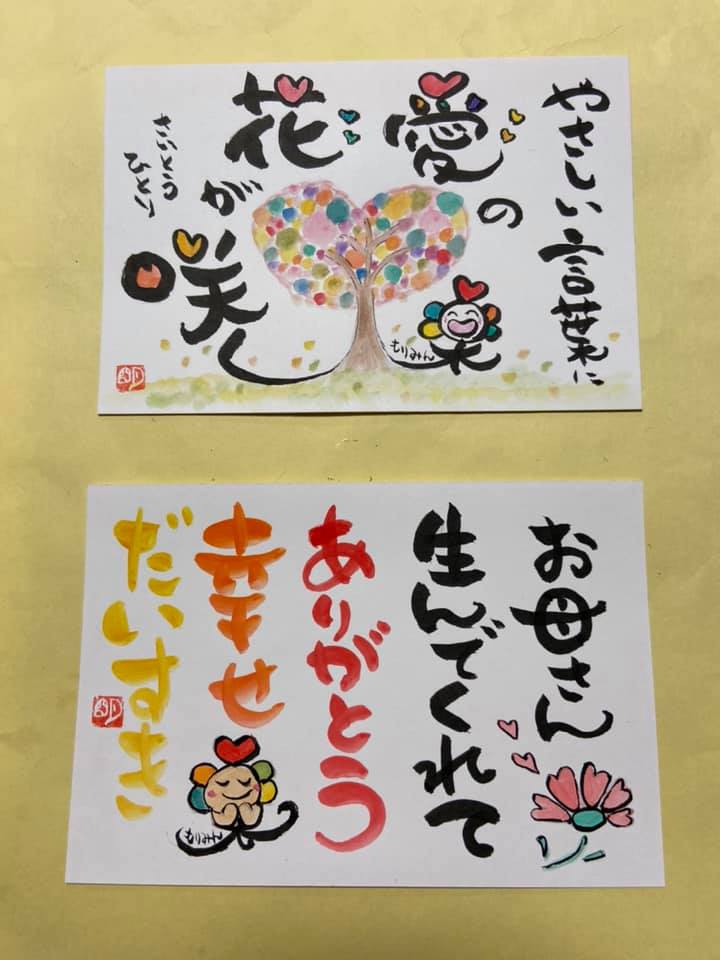 やさしい言葉に
愛の
花が
咲く
さいとうひとり
もりみん
お母さん
生んでくれて
ありがとう
幸せ
だいすき
もりみん